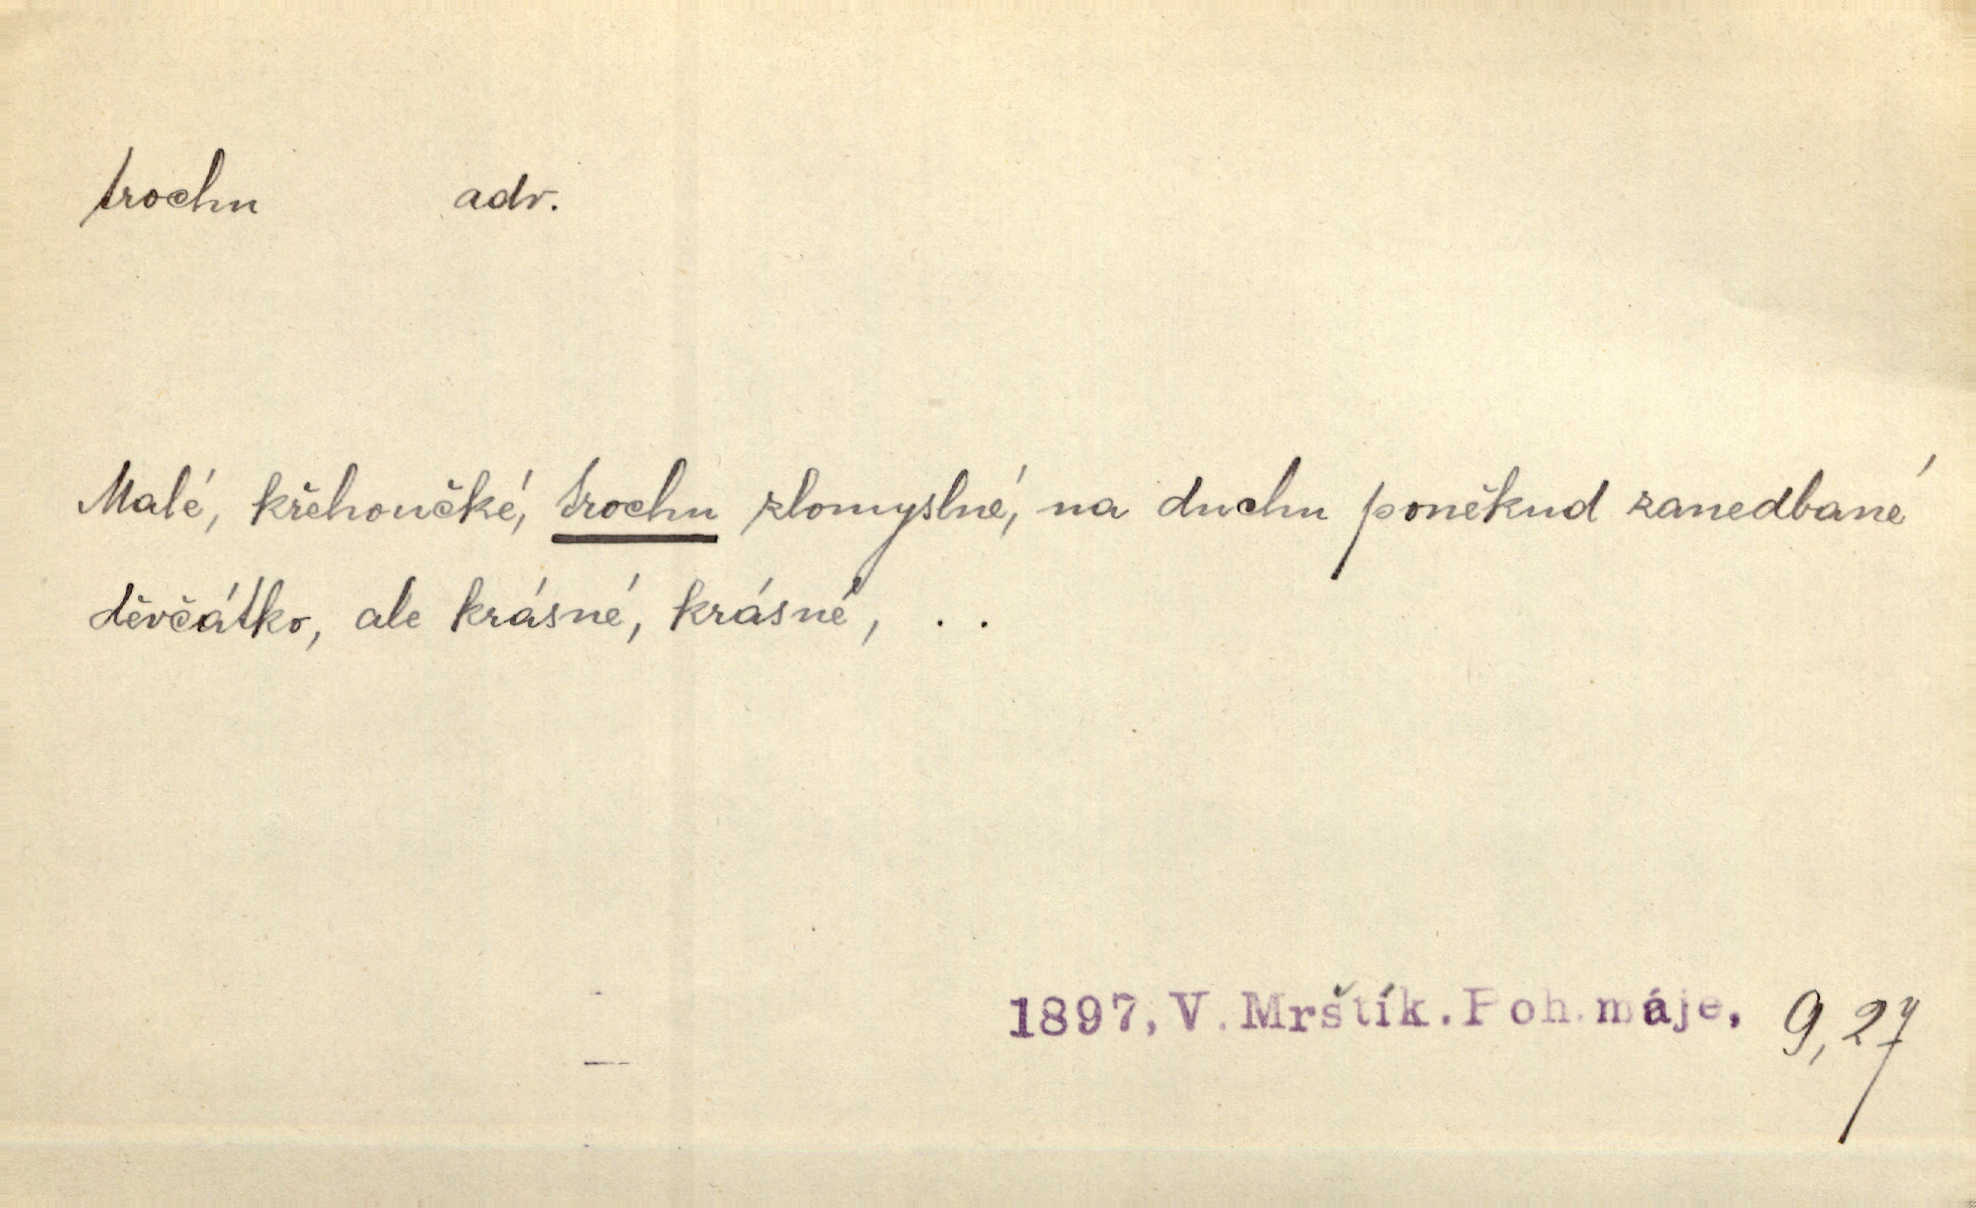 trochu adv.
Malé, křehoučké, trochu zlomyslné, na duchu poněkud zanedbané
děvčátko, ale krásné, krásné, . .
1897, V. Mrštík. Poh. máje, 9,27